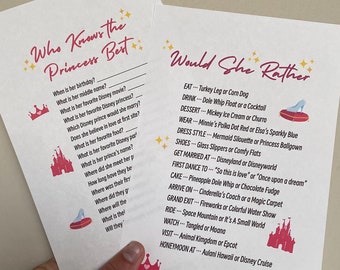 Who Knows the
Princess Best
When is her birthday?
What is her middle name?
What is her favorite Disney movie?
What is her favorite Disney princess?
Which Disney prince would she marry?
Does she believe in love at first site?
What is her favorite food?
What is
What is her prince's name?
Where did she meet her
How long have they
Where was their
Where did
What is
Where will
What is
Where
Would She Rather
EAT -- Turkey Leg or Corn Dog
DRINK -- Dole Whip Float or a Cocktail
DESSERT -- Mickey Ice Cream or Churro
WEAR -- Minnie's Polka Dot Red or Elsa's Sparkly Blue
DRESS STYLE -- Mermaid Silhouette or Princess Ballgown
SHOES -- Glass Slippers or Comfy Flats
GET MARRIED AT -- Disneyland or Disneyworld
FIRST DANCE TO -- "So this is love" or "Once upon a dream"
CAKE -- Pineapple Dole Whip or Chocolate Fudge
ARRIVE ON -- Cinderella's Coach or a Magic Carpet
GRAND EXIT -- Fireworks or Colorful Water Show
RIDE -- Space Mountain or It's A Small World
WATCH -- Tangled or Moana
VISIT -- Animal Kingdom or Epcot
HONEYMOON AT -- Aulani Hawaii or Disney Cruise